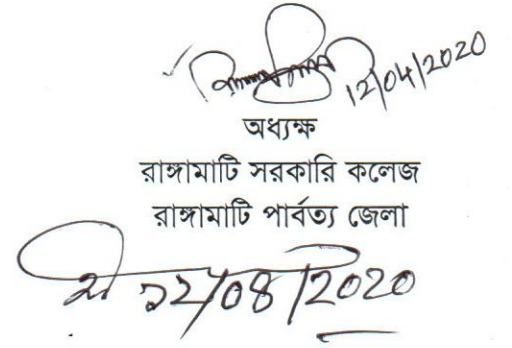 12/04/2020
অধ্যক্ষ
রাঙ্গামাটি সরকারি কলেজ
রাঙ্গামাটি পার্বত্য জেলা
১২/০৪/২০২০